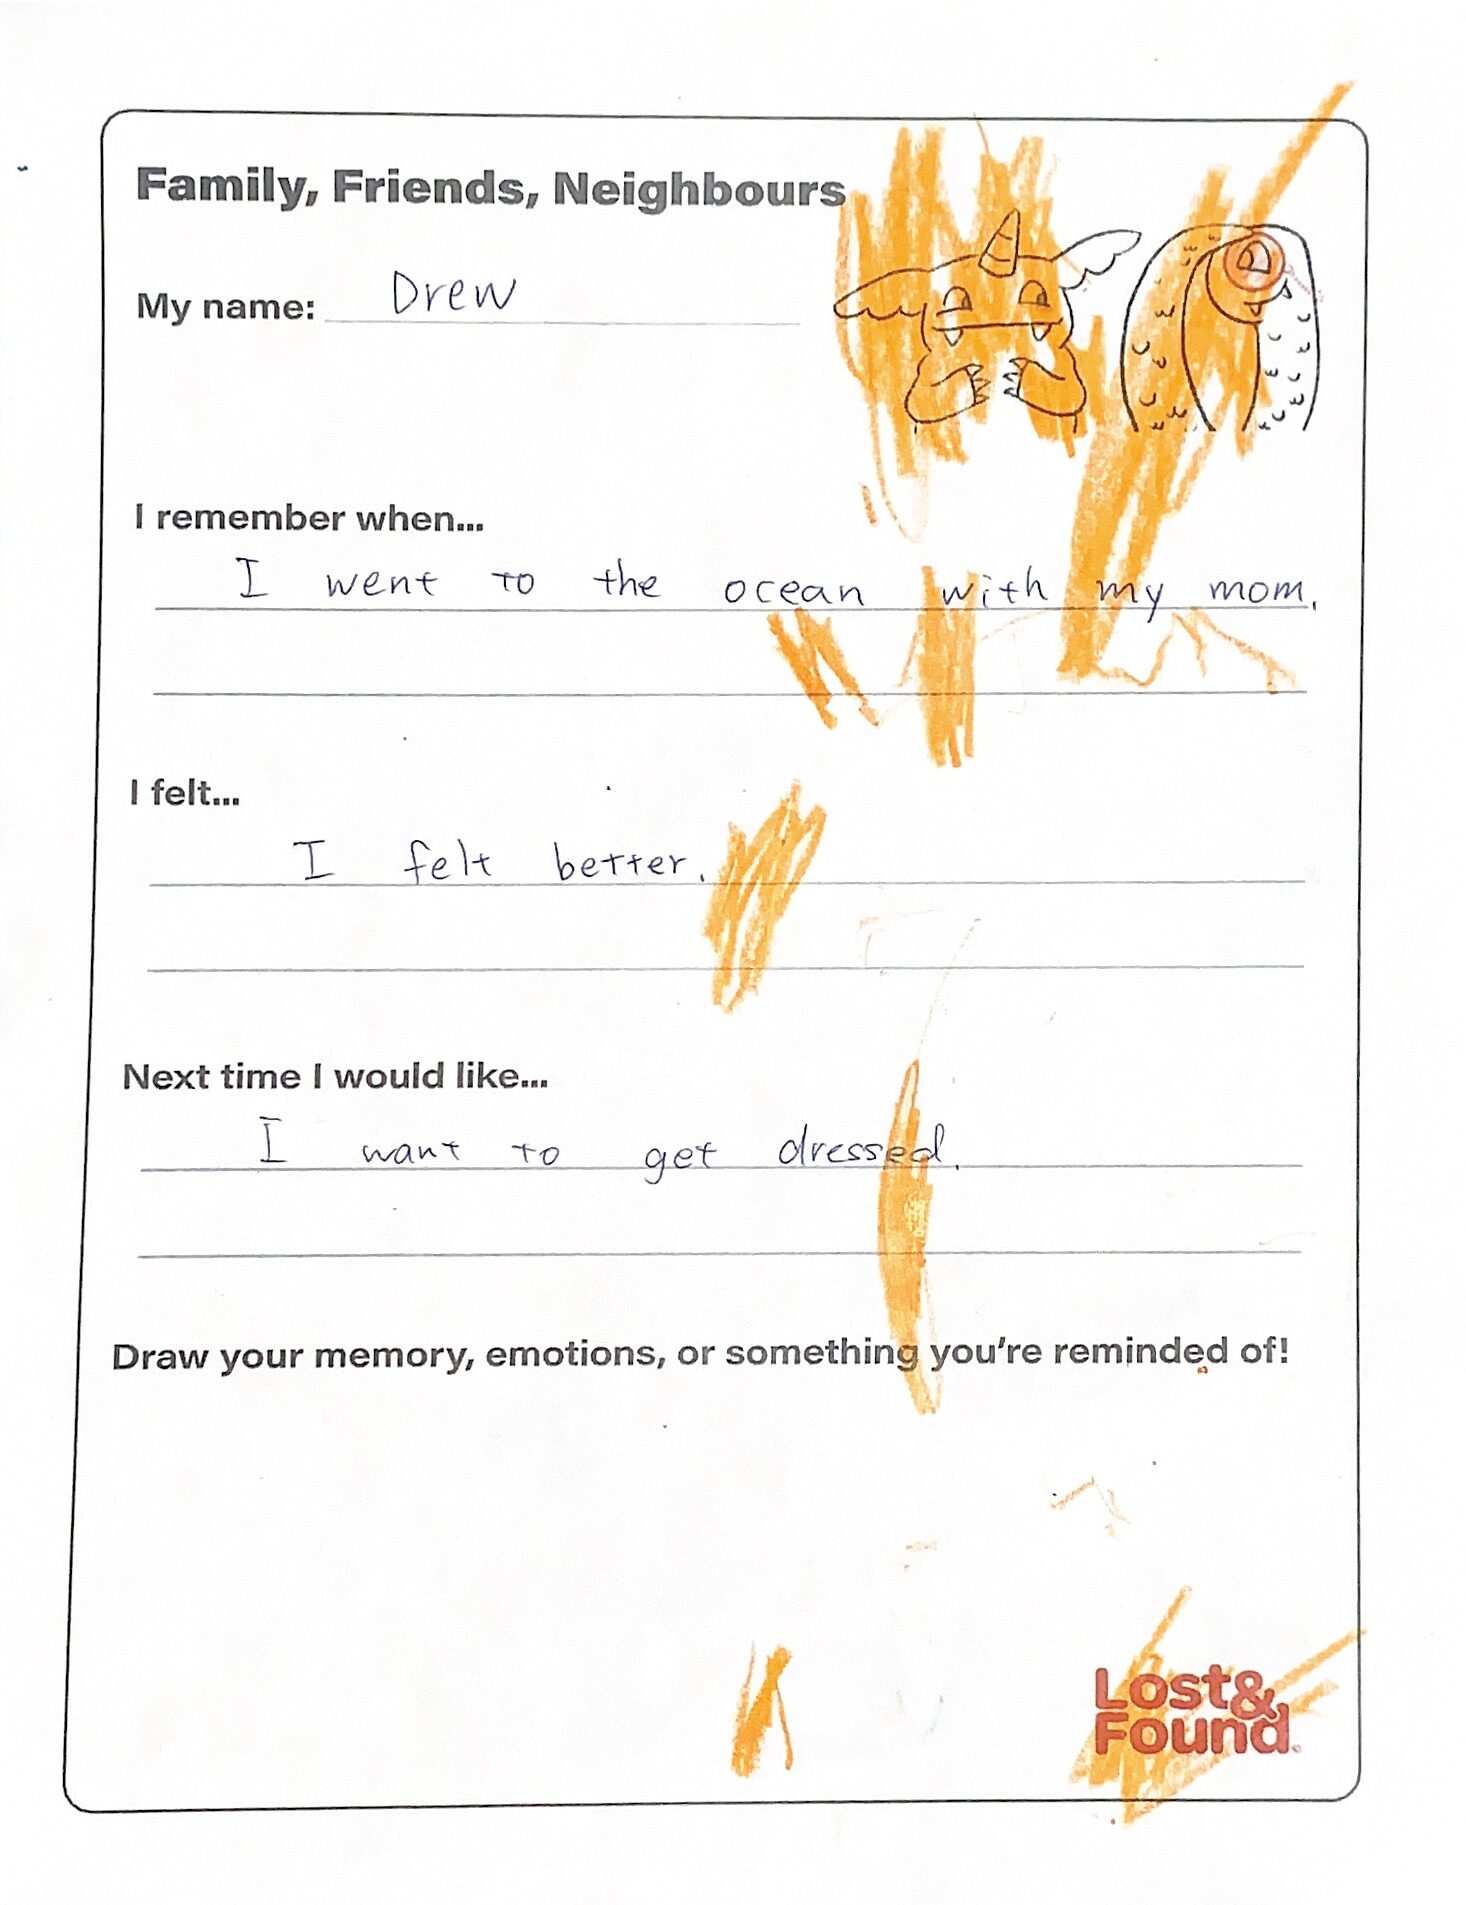 Family, Friends, Neighbours
My name: Drew
I remember when...
I went to the ocean with my mom.
I felt...
I felt better.
Next time I would like...
I want to get dressed.
Draw your memory, emotions, or something you're reminded of!
Lost&
Found.